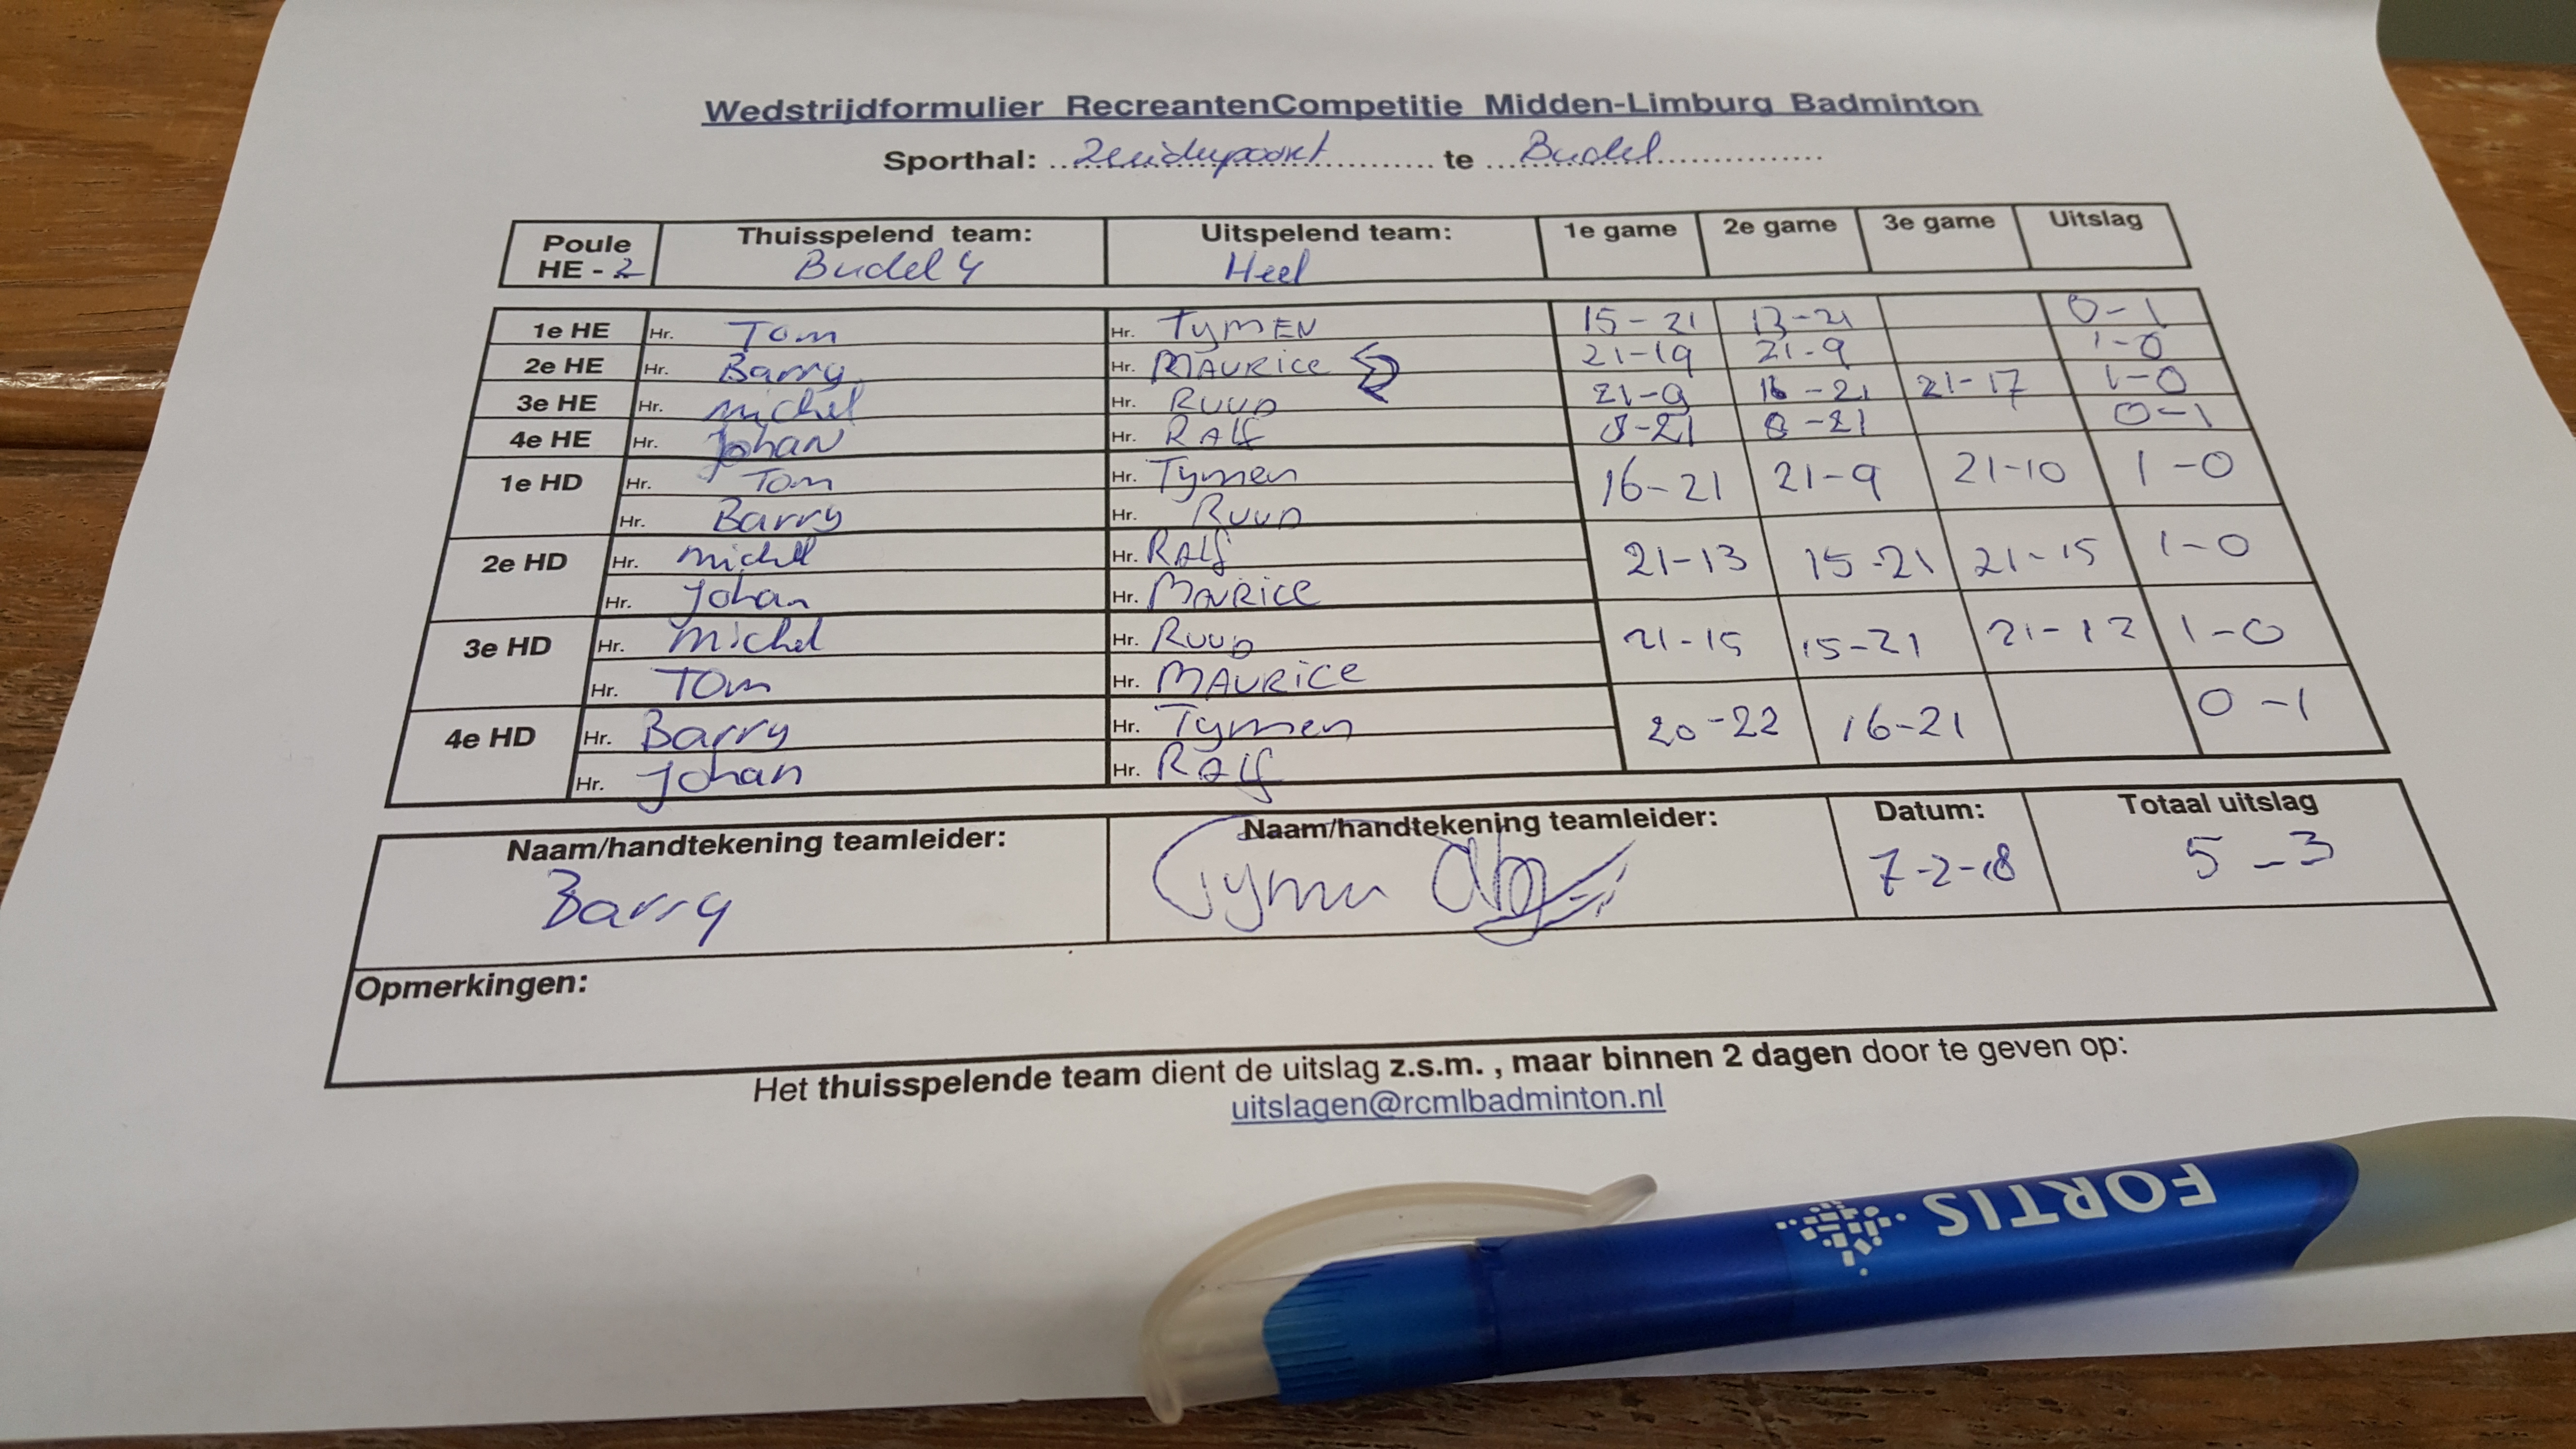 Wedstrijdformulier RecreantenCompetitie Midden-Limburg Badminton
Sporthal: Zuiderpoort te Budel
Poule HE - 2 Thuisspelend team: Budel 4 Uitspelend team: Heel 1e game 2e game 3e game Uitslag
1e HE Hr. Tom Hr. TYMEN 15-21 13-21 0-1
2e HE Hr. Barry Hr. MAURICE 21-19 21-9 1-0
3e HE Hr. Michel Hr. RUUD 21-9 16-21 21-17 1-0
4e HE Hr. Johan Hr. RALF 8-21 8-21 0-1
1e HD Hr. Tom Hr. Tymen 16-21 21-9 21-10 1-0
Hr. Barry Hr. RUUD
2e HD Hr. Michel Hr. RALF 21-13 15-21 21-15 1-0
Hr. Johan Hr. MAURICE
3e HD Hr. Michel Hr. RUUD 21-15 15-21 21-12 1-0
Hr. TOM Hr. MAURICE
4e HD Hr. Barry Hr. Tymen 20-22 16-21 0-1
Hr. Johan Hr. RALF
Naam/handtekening teamleider: Naam/handtekening teamleider: Datum: Totaal uitslag
Barry Tymen 7-2-18 5-3
Opmerkingen:
Het thuisspelende team dient de uitslag z.s.m. , maar binnen 2 dagen door te geven op:
uitslagen@rcmlbadminton.nl
FORTIS